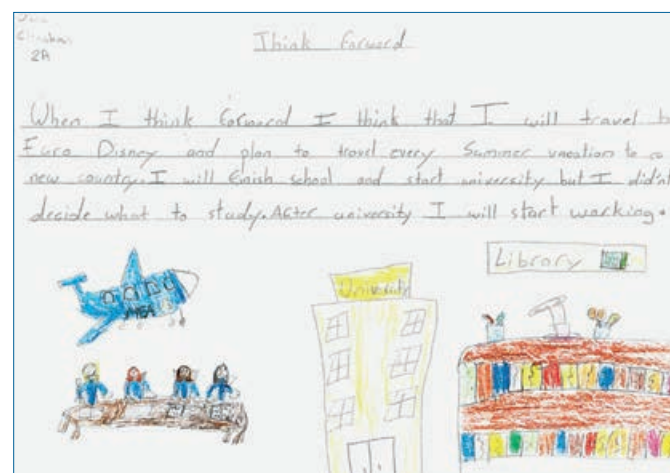 2A
Think Forward
When I think forward I think that I will travel to
Euro Disney and plan to travel every Summer vacation to a
new country. I will finish school and start university but I didn't
decide what to study. After university I will start working.
Library
University
MEA